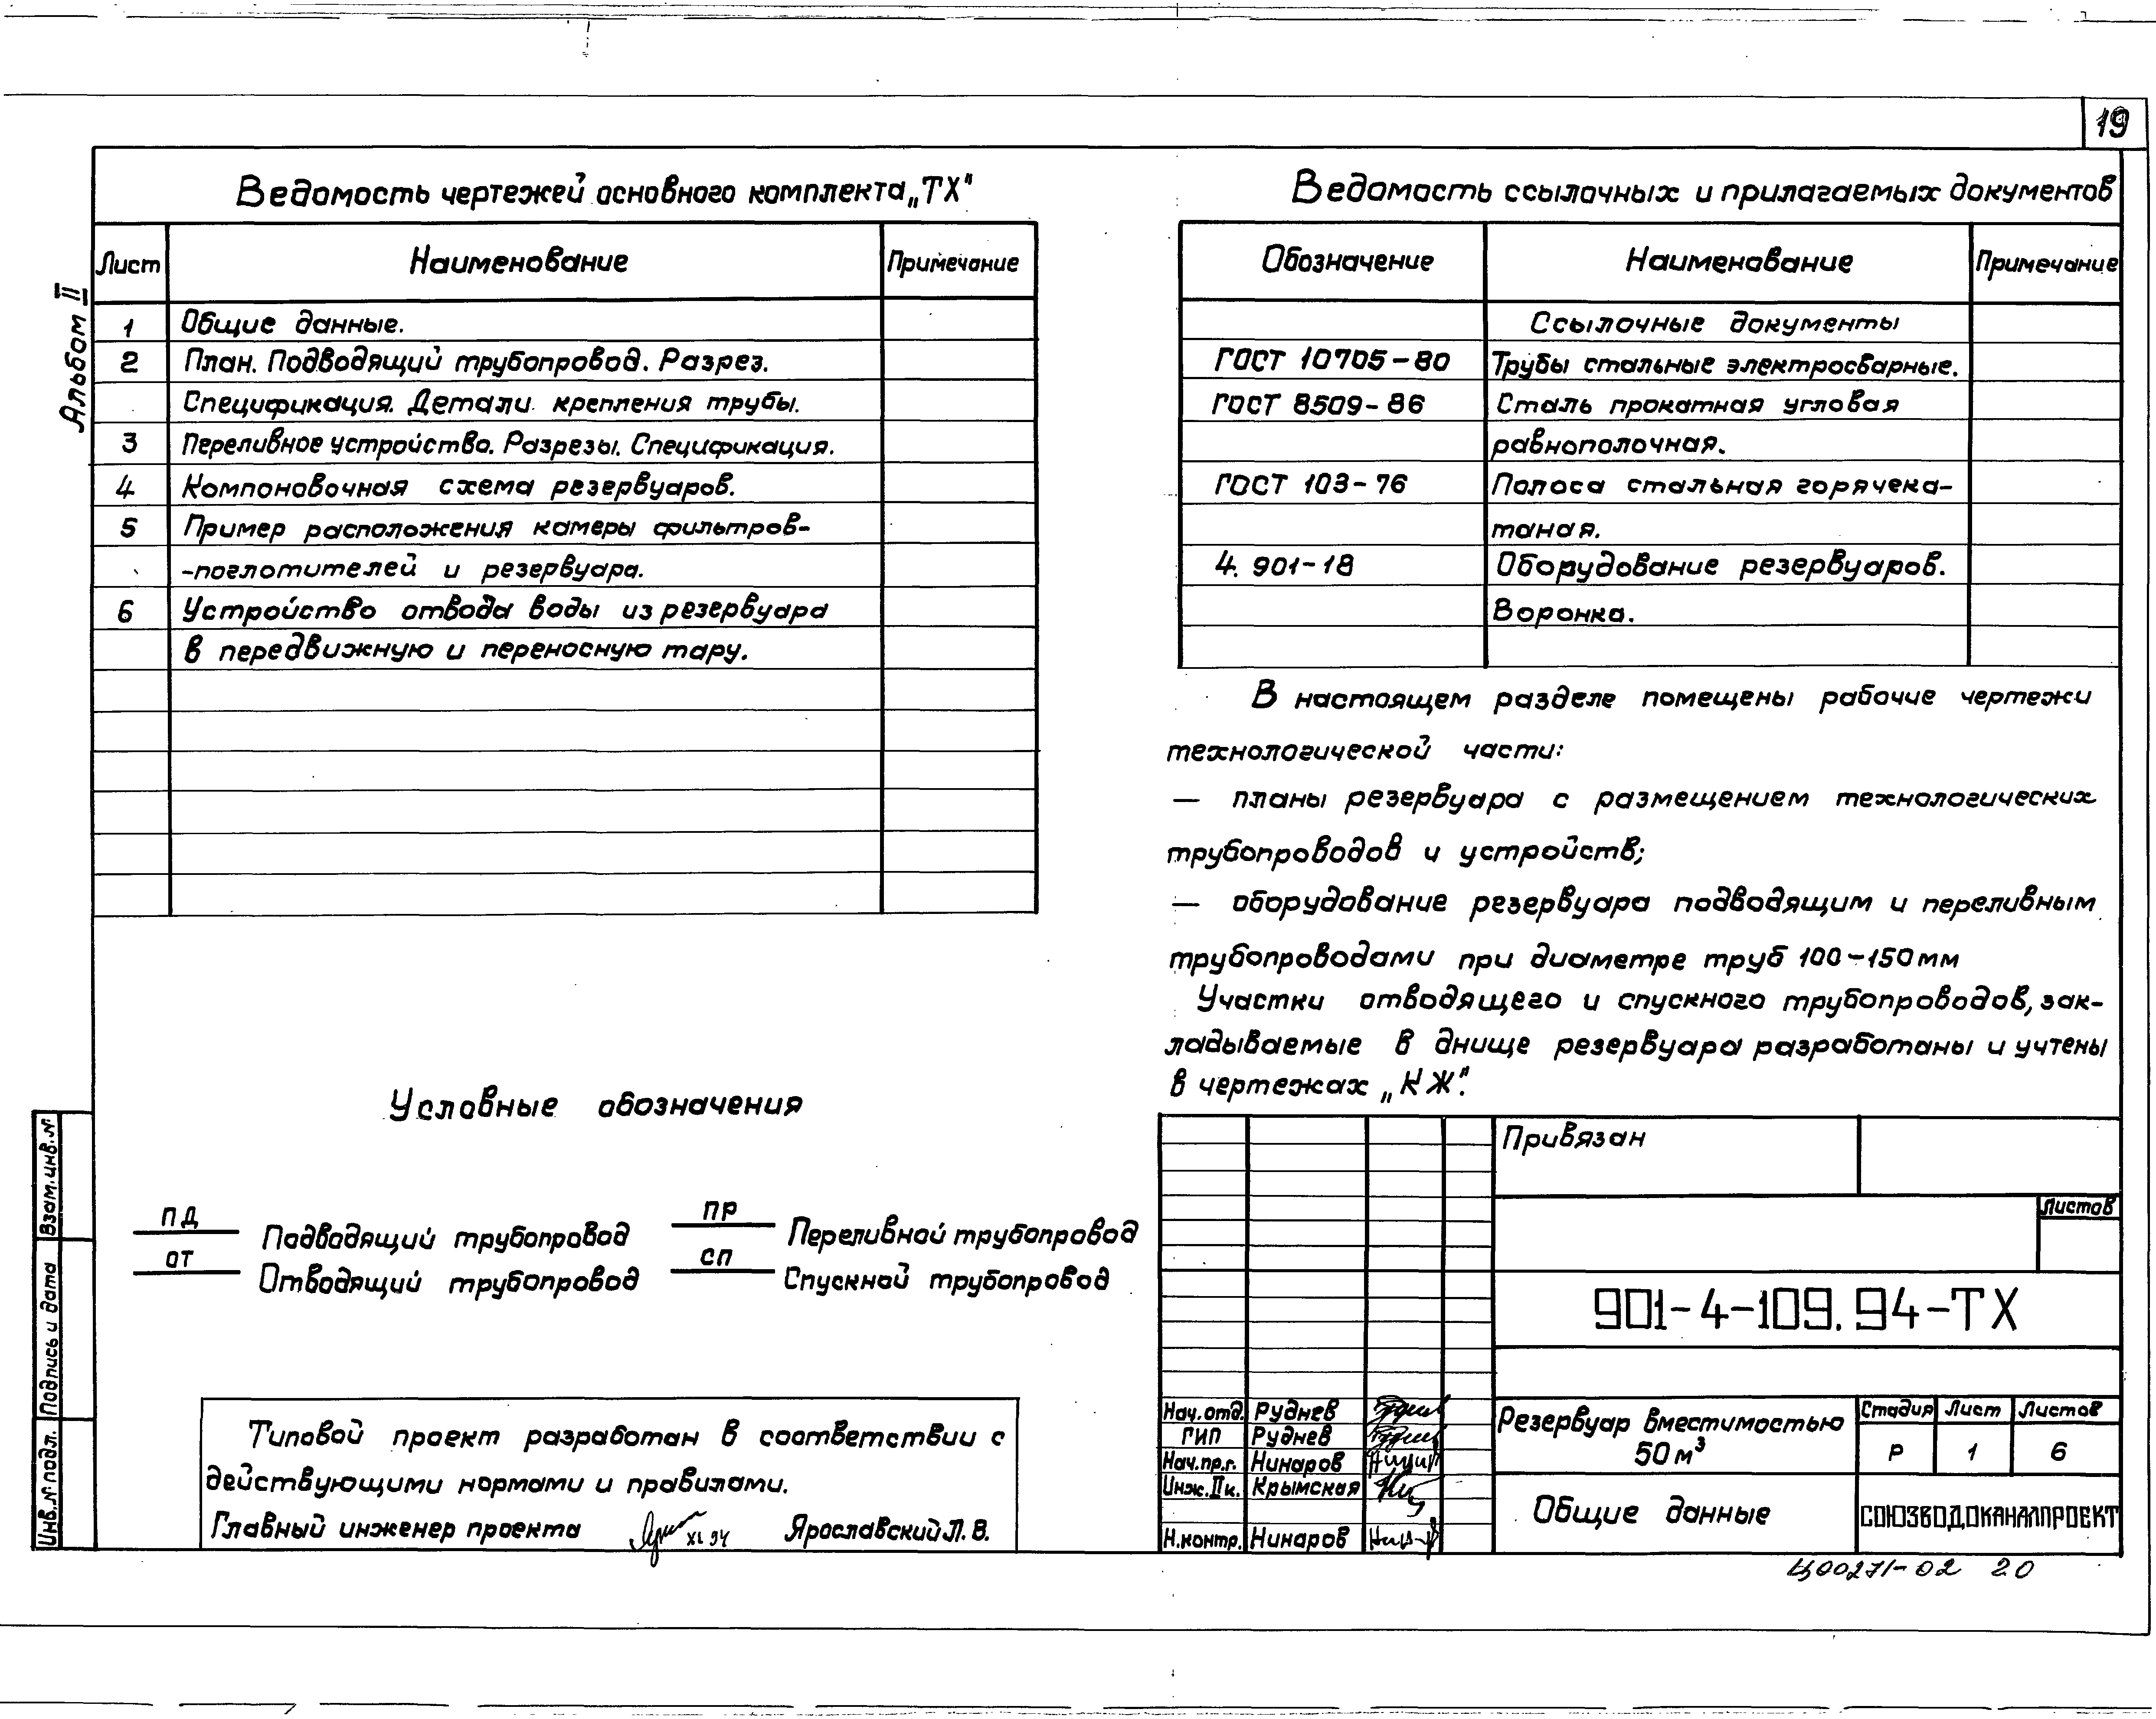 19
Альбом II
Ведомость чертежей основного комплекта „ТХ"
Лист Наименование Примечание
1 Общие данные.
2 План. Подводящий трубопровод. Разрез.
Спецификация. Детали крепления трубы.
3 Переливное устройство. Разрезы. Спецификация.
4 Компоновочная схема резервуаров.
5 Пример расположения камеры фильтров-
-поглотителей и резервуара.
6 Устройство отвода воды из резервуара
в передвижную и переносную тару.
Ведомость ссылочных и прилагаемых документов
Обозначение Наименование Примечание
Ссылочные документы
ГОСТ 10705-80 Трубы стальные электросварные.
ГОСТ 8509-86 Сталь прокатная угловая
равнополочная.
ГОСТ 103-76 Полоса стальная горячека-
таная.
4.901-18 Оборудование резервуаров.
Воронка.
В настоящем разделе помещены рабочие чертежи
технологической части:
— планы резервуара с размещением технологических
трубопроводов и устройств;
— оборудование резервуара подводящим и переливным
трубопроводами при диаметре труб 100-150мм
Участки отводящего и спускного трубопроводов, зак-
ладываемые в днище резервуара разработаны и учтены
в чертежах „КЖ".
Условные обозначения
ПД Подводящий трубопровод
ОТ Отводящий трубопровод
ПР Переливной трубопровод
СП Спускной трубопровод
Типовой проект разработан в соответствии с
действующими нормами и правилами.
Главный инженер проекта XI 94 Ярославский Л.В.
Взам.инв.N
Подпись и дата
Инв.N подл.
Привязан
Листов
901-4-109.94-ТХ
Нач.отд. Руднев
ГИП Руднев
Нач.пр.г. Нинаров
Инж.IIк. Крымская
Н.контр. Нинаров
Резервуар вместимостью
50м³
Стадия Лист Листов
Р 1 6
Общие данные
СОЮЗВОДОКАНАЛПРОЕКТ
Ц00271-02 20